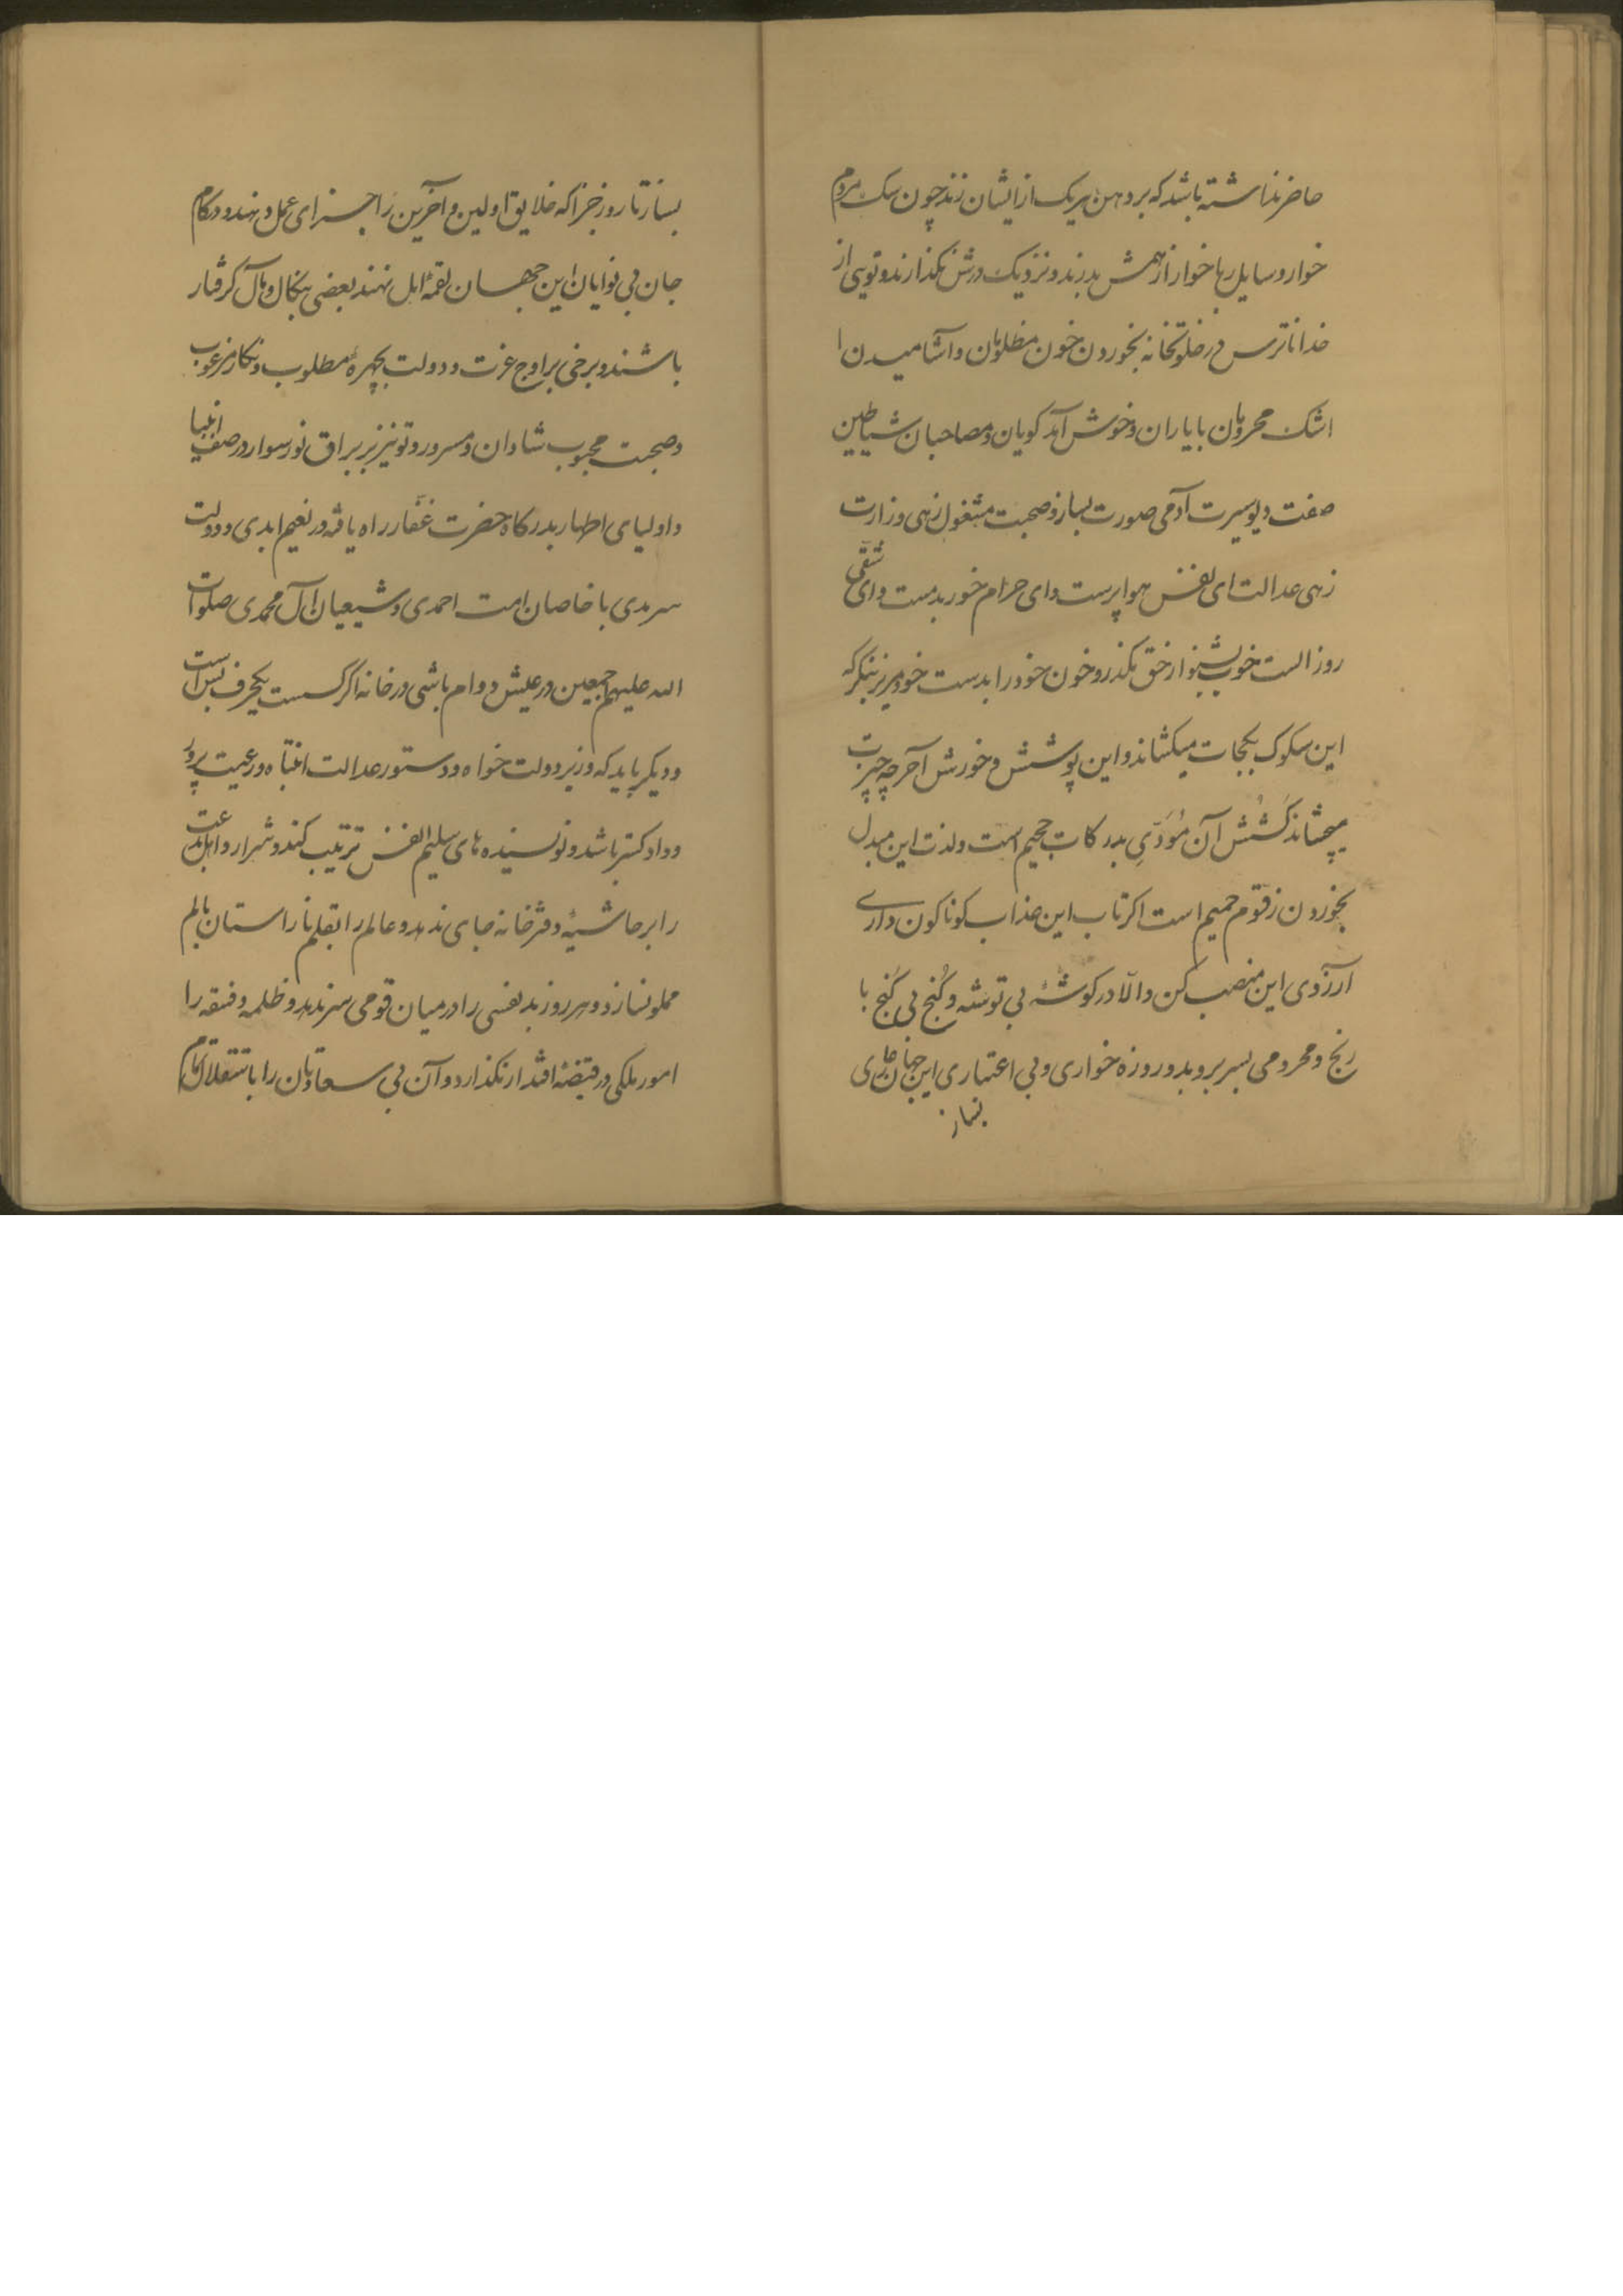 حاضر نداشته باشد که بر دهن هر یک از ایشان زند چون سک مردم
خوار و سایل رباخوار از همش بدرند و نزدیک درش نکذارند و تو بی از
خدا ناترس در خلوتخانه بخوردن خون مظلومان و آشامیدن
اشک محرومان با یاران و خوش آمد کویان و مصاحبان شیاطین
صفت دیو سیرت آدمی صورت بساز و صحبت مشغول زهی وزارت
زهی عدالت ای نفس هوا پرست وای حرام خور بدمست وای شقی
روز الست خوب بشنو از حق مکذر و خون خود را بدست خود مریز بنکر که
این سکوک بکجات میکشاند و این پوشش و خورش آخر چه چیزت
میچشاند کشش آن مؤدّیِ بدرکات جحیم است و لذت این مبدل
بخوردن زقّوم حمیم است اکر تاب این عذاب کوناکون داری
آرزوی این منصب کن و الّا در کوشهٔ بی توشه و کُنج بی کَنج با
رنج و محرومی بسر بر و بدو روزه خواری و بی اعتباری این جهان فانی
بساز
بساز تا روز جزا که خلایق اولین و آخرین را جزای عمل دهند و در کام
جان بی نوایان این جهان لقمهٔ امل نهند بعضی بنکال و وبال کرفتار
باشند و برخی بر اوج عزت و دولت بچهرهٔ مطلوب و نکار مرغوب
و صحبت محبوب شادان و مسرور و تو نیز بر براق نور سوار در صف انبیا
و اولیای اطهار بدرکاه حضرت غفّار راه یافته در نعیم ابدی و دولت
سرمدی با خاصان امت احمدی و شیعیان آل محمدی صلوات
الله علیهم اجمعین در عیش دوام باشی در خانه اکر کسست یکحرف بس است
و دیکر باید که وزیر دولت خواه و دستور عدالت انتباه و رعیت پرور
و دادکستر باشد و نویسنده های سلیم النفس ترتیب کند و شرار و اهل بدعت
را بر حاشیهٔ دفترخانه جای ندهد و عالم را بقلم ناراستان بالم
مملو نسازد و هر روز بد نفسی را در میان قومی سر ندهد و ظلمه و فسقه را
امور ملکی در قبضهٔ اقتدار نکذارد و آن بی سعادتان را باستقلال تمام